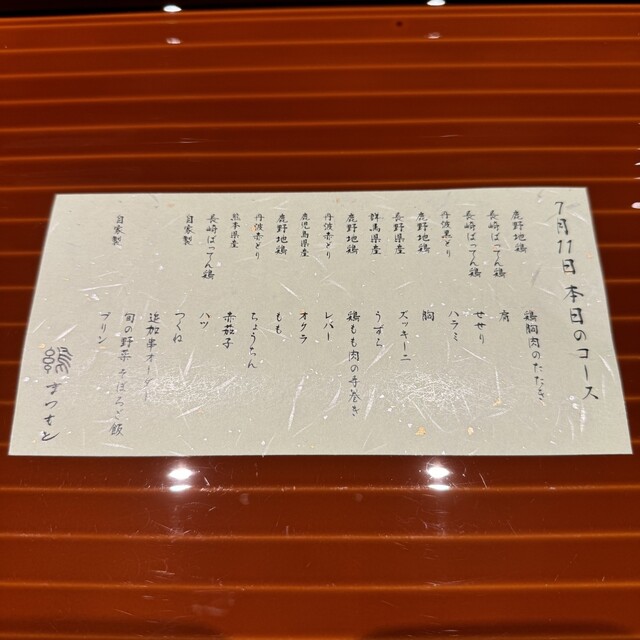 7月11日 本日のコース
鹿野地鶏 鶏胸肉のたたき
長崎ばってん鶏 肩
長崎ばってん鶏 せせり
丹波黒どり ハラミ
鹿野地鶏 胸
長野県産 ズッキーニ
群馬県産 うずら
鹿野地鶏 鶏もも肉の手巻き
丹波赤どり レバー
鹿児島県産 オクラ
鹿野地鶏 もも
丹波赤どり ちょうちん
熊本県産 赤茄子
長崎ばってん鶏 ハツ
自家製 つくね
追加串オーダー
旬の野菜 そぼろご飯
自家製 プリン
鶏 まつもと